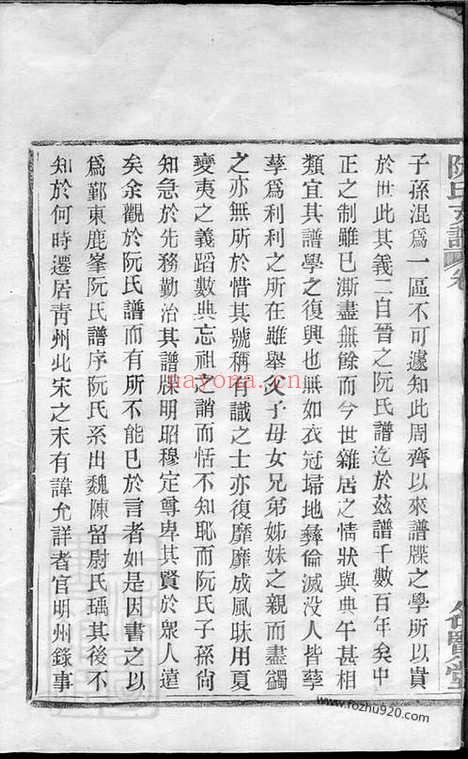 子孫混爲一區不可遽知此周齊以來譜牒之學所以貴
於世此其義二自晉之阮氏譜迄於茲譜千數百年矣中
正之制雖已澌盡無餘而今世雜居之情狀與典午甚相
類宜其譜學之復興也無如衣冠埽地彝倫滅没人皆孳
孳爲利利之所在雖舉父子母女兄弟姊妹之親而盡蠲
之亦無所於惜其號稱有識之士亦復靡靡成風昧用夏
變夷之義蹈數典忘祖之誚而恬不知恥而阮氏子孫尙
知急於先務勤治其譜牒明昭穆定尊卑其賢於眾人遠
矣余觀於阮氏譜而有所不能已於言者如是因書之以
爲鄞東鹿峯阮氏譜序阮氏系出魏陳留尉氏瑀其後不
知於何時遷居青州此宋之末有諱允詳者官明州錄事
阮氏支譜 卷
名賢堂
nayona.cn
www.fozhu920.com